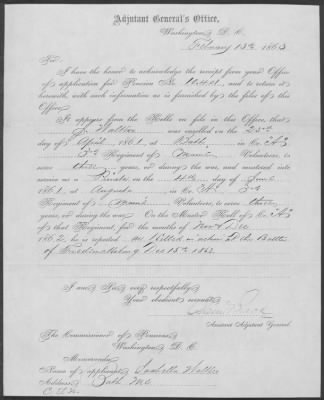 Adjutant General's Office,
Washington, D. C.
February 13th, 1863
Sir:
I have the honor to acknowledge the receipt from your Office
of application for Pension No. and to return it
herewith, with such information as is furnished by the files of this
Office.
It appears from the Rolls on file in this Office, that
J. Wallace was enrolled on the 25th
day of April, 1861, at Bath in Co. "A"
3d Regiment of Maine Volunteers, to
serve three years, or during the war, and mustered into
service as a Private on the 4th day of June
1861, at Augusta in Co. "A" 3d
Regiment of Maine Volunteers, to serve three
years, or during the war. On the Muster Roll of Co. "A"
of that Regiment, for the months of Nov & Dec
1862, he is reported as Killed in action at the Battle
of Fredericksburg Dec 13th 1862
I am, Sir, very respectfully,
Your obedient servant,
Assistant Adjutant General.
The Commissioner of Pensions,
Washington, D. C.
Memoranda:
Name of applicant, Isabella Wallace
Address, Bath Me